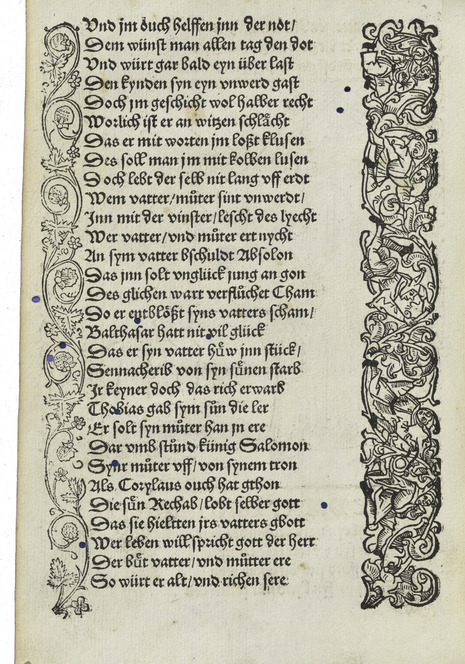 Vnd jm öuch helffen jnn der not/
Dem wünst man allen tag den dot
Vnd würt gar bald eyn über last
Den kynden syn eyn vnwerd gast
Doch jm geschicht wol halber recht
Worlich ist er an witzen schlächt
Das er mit worten jm loßt klusen
Des soll man jm mit kolben lusen
Doch lebt der selb nit lang vff erdt
Wem vatter/müter sint vnwerdt/
Jnn mit der vinster/lescht des lyecht
Wer vatter/vnd můter ert nycht
An sym vatter bschuldt Absolon
Das jnn solt vnglück jung an gon
Des glichen wart verflüchet Cham
Do er entblößt syns vatters scham/
Balthasar hatt nit vil glück
Das er syn vatter hůw jnn stück/
Sennacherib von syn sünen starb
Jr keyner doch das rich erwarb
Thobias gab sym sün die ler
Er solt syn můter han jn ere
Dar vmb stünd künig Salomon
Synr můter vff/von synem tron
Als Corylaus ouch hat gthon
Die sün Rechab/lobt selber gott
Das sie hieltten jrs vatters gbott
Wer leben will spricht gott der herr
Der büt vatter/vnd můtter ere
So würt er alt/vnd richen sere